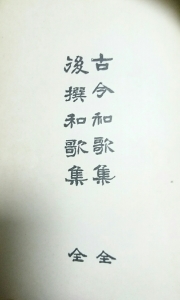 古今和歌集 全
後撰和歌集 全